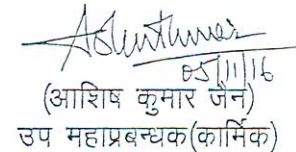 05/11/16
(आशिष कुमार जैन)
उप महाप्रबन्धक(कार्मिक)